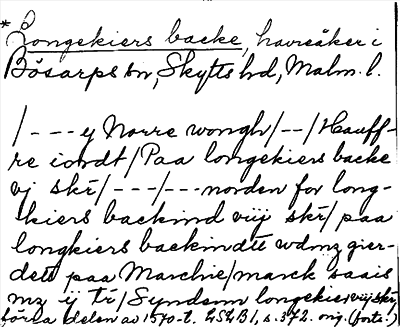 * Longekiers backe, havreåker i
Bösarps sn, Skytts hd, Malm. l.
/---y Norre wongh/--/Hauff-
re iordt/Paa longekiers backe
vj skr/---/---norden for long-
kiers backind viij skr/paa
longkiers backindtt wdmz gier-
dett paa Marchie/marck saais
mz ij tr/Syndenn longekier viij skr
förra delen av 1570-t. LSLB1, s.372. orig. (forts.)